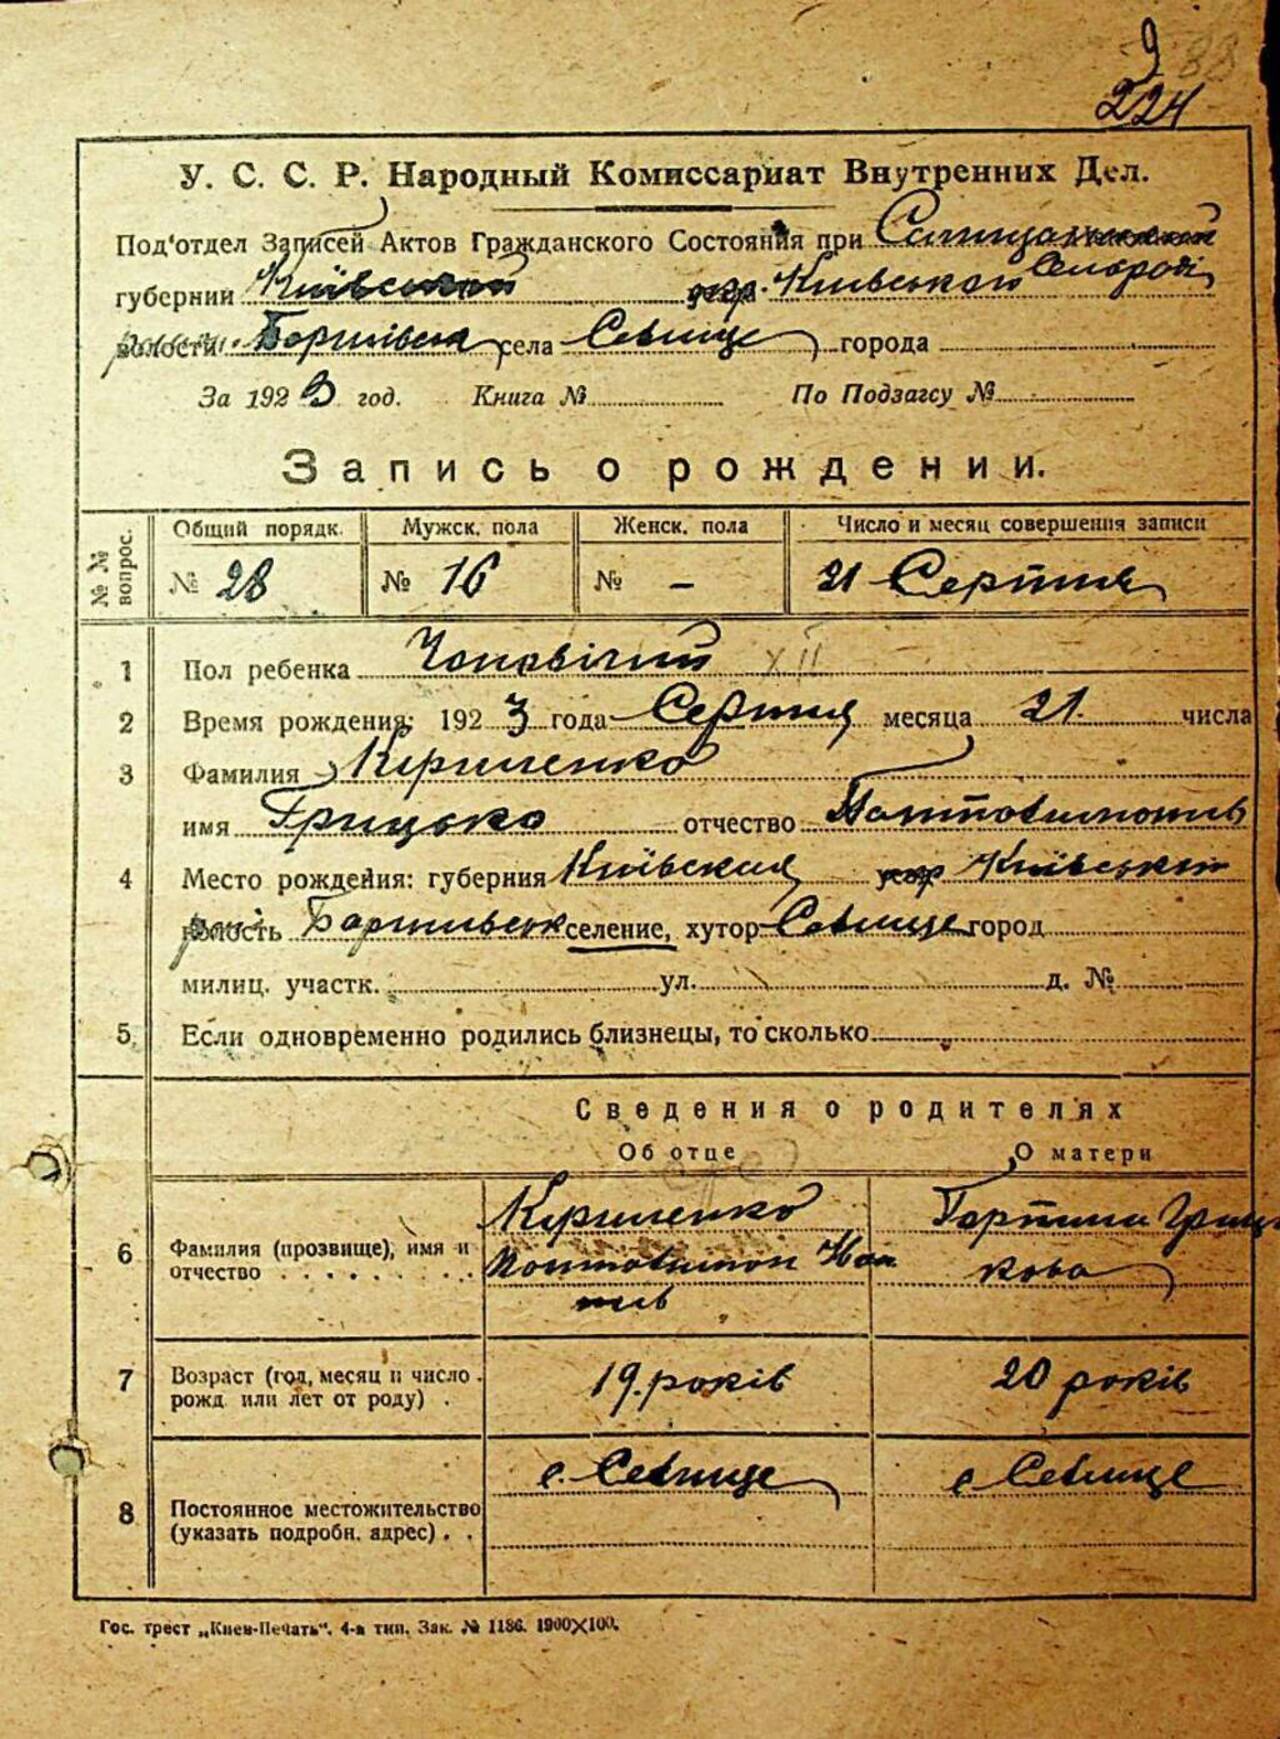 9 88
224
У. С. С. Р. Народный Комиссариат Внутренних Дел.
Под'отдел Записей Актов Гражданского Состояния при
губернии Київської окр. Київської Сільраді
волости села Селище города
За 1923 год. Книга № По Подзагсу №
Запись о рождении.
№№ вопрос. Общий порядк. Мужск. пола Женск. пола Число и месяц совершения записи
№ 28 № 16 № – 21 Серпня
1 Пол ребенка XII
2 Время рождения: 1923 года Серпня месяца 21. числа
3 Фамилия Кириленко
имя Грицько отчество
4 Место рождения: губерния Київская окр Київськой
волость селение, хутор Селище город
милиц. участк. ул. д. №
5 Если одновременно родились близнецы, то сколько
Сведения о родителях
Об отце О матери
6 Фамилия (прозвище), имя и отчество Кириленко
Горпина Гриць
кова
7 Возраст (год, месяц и число рожд или лет от роду) . 19 років 20 років
8 Постоянное местожительство (указать подробн. адрес) . . с. Селище с Селище
Гос. трест „Киев-Печать“. 4-я тип. Зак. № 1186. 1900×100.